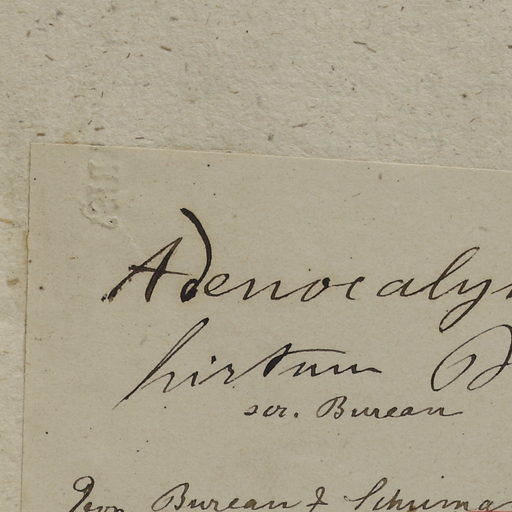 Adenocaly
hirtum
scr. Bureau
Bureau & Schuma